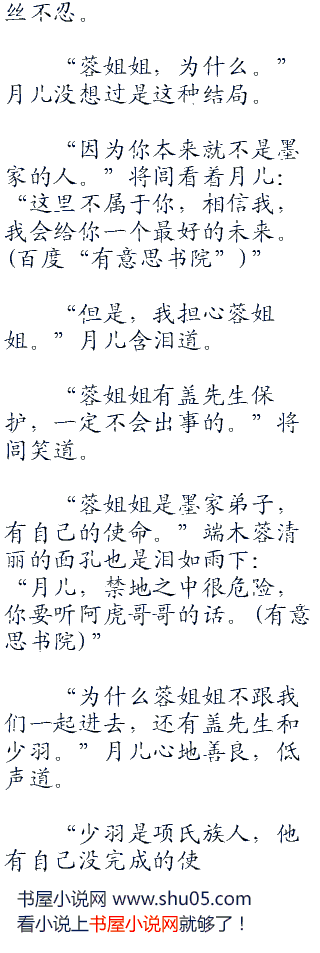 丝不忍。
“蓉姐姐，为什么。”
月儿没想过是这种结局。
“因为你本来就不是墨
家的人。”将闾看着月儿：
“这里不属于你，相信我，
我会给你一个最好的未来。
(百度“有意思书院”)”
“但是，我担心蓉姐
姐。”月儿含泪道。
“蓉姐姐有盖先生保
护，一定不会出事的。”将
闾笑道。
“蓉姐姐是墨家弟子，
有自己的使命。”端木蓉清
丽的面孔也是泪如雨下：
“月儿，禁地之中很危险，
你要听阿虎哥哥的话。(有意
思书院)”
“为什么蓉姐姐不跟我
们一起进去，还有盖先生和
少羽。”月儿心地善良，低
声道。
“少羽是项氏族人，他
有自己没完成的使
书屋小说网 www.shu05.com
看小说上书屋小说网就够了！